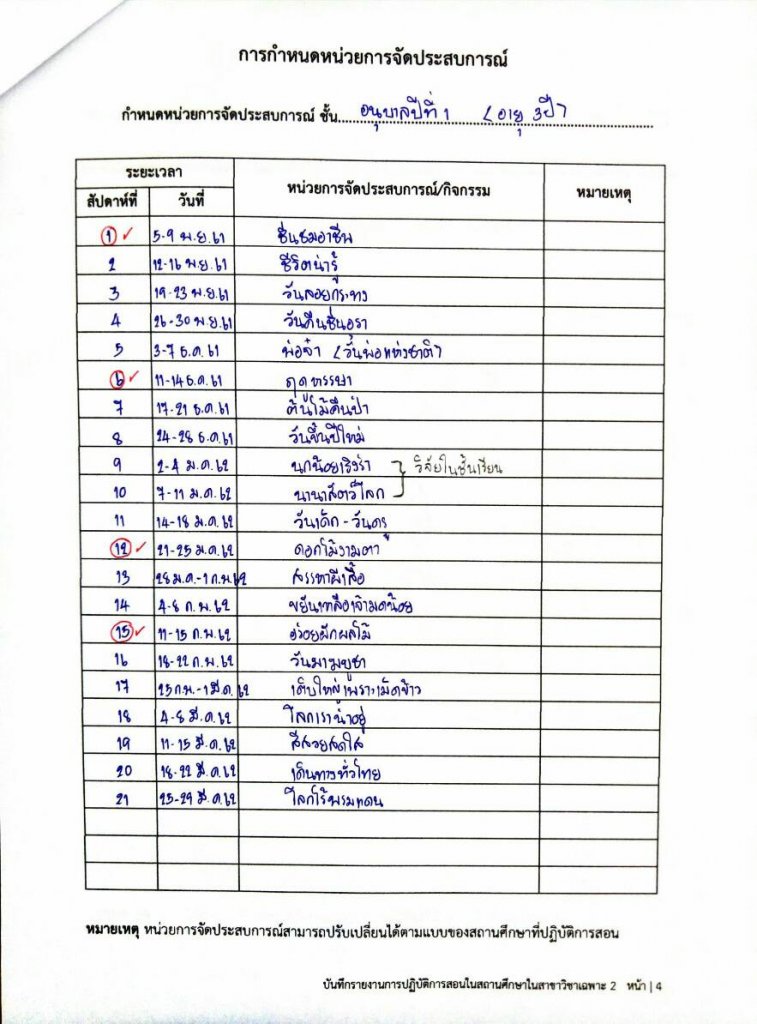 การกำหนดหน่วยการจัดประสบการณ์
กำหนดหน่วยการจัดประสบการณ์ ชั้น อนุบาลปีที่ 1 (อายุ 3ปี)
ระยะเวลา หน่วยการจัดประสบการณ์/กิจกรรม หมายเหตุ
สัปดาห์ที่ วันที่
1 ✓ 5-9 พ.ย.61 ชื่นชมอาชีพ
2 12-16 พ.ย.61 ชีวิตน่ารู้
3 19-23 พ.ย.61 วันลอยกระทง
4 26-30 พ.ย.61 วันคืนชื่นอุรา
5 3-7 ธ.ค.61 พ่อจ๋า (วันพ่อแห่งชาติ)
6 ✓ 11-14 ธ.ค.61 ฤดูหรรษา
7 17-21 ธ.ค.61 ต้นไม้คืนป่า
8 24-28 ธ.ค.61 วันขึ้นปีใหม่
9 2-4 ม.ค.62 นกน้อยเริงร่า
วิจัยในชั้นเรียน
10 7-11 ม.ค.62 นานาสัตว์โลก
11 14-18 ม.ค.62 วันเด็ก-วันครู
12 ✓ 21-25 ม.ค.62 ดอกไม้งามตา
13 28 ม.ค.-1 ก.พ.62 สรรหาผีเสื้อ
14 4-8 ก.พ.62 ขยันเหลือเจ้ามดน้อย
15 ✓ 11-15 ก.พ.62 อร่อยผักผลไม้
16 18-22 ก.พ.62 วันมาฆบูชา
17 25 ก.พ.-1 มี.ค.62 เติบใหญ่เพราะเม็ดข้าว
18 4-8 มี.ค.62 โลกเราน่าอยู่
19 11-15 มี.ค.62 สีสวยสดใส
20 18-22 มี.ค.62 เดินทางทั่วไทย
21 25-29 มี.ค.62 โลกไร้พรมแดน
หมายเหตุ หน่วยการจัดประสบการณ์สามารถปรับเปลี่ยนได้ตามแบบของสถานศึกษาที่ปฏิบัติการสอน
บันทึกรายงานการปฏิบัติการสอนในสถานศึกษาในสาขาวิชาเฉพาะ 2 หน้า | 4